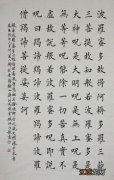 波羅蜜多故得阿耨多羅三藐
三菩提故知般若波羅蜜多是
大神呪是大明呪是無上呪是
無等等呪能除一切苦真實不
虛故說般若波羅蜜多呪即說
呪曰揭諦揭諦波羅揭諦波羅
僧揭諦菩提娑婆訶